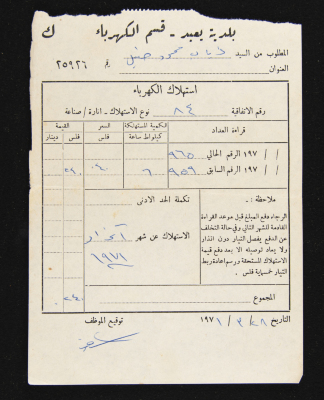 بلدية يعبد - قسم الكهرباء
ك
المطلوب من السيد
محمود
العنوان
رقم ٢٥٩٢٦
استهلاك الكهرباء
رقم الاتفاقية ٨٤ نوع الاستهلاك - انارة / صناعة
قراءة العداد الكمية المستهلكة السعر القيمة
كيلواط ساعة فلس فلس دينار
/ / ١٩٧ الرقم الحالي ٩٦٥
/ / ١٩٧ الرقم السابق ٩٥٩ ٦ ٤٠ ٢٤٠
ملاحظة :ـ
تكملة الحد الادنى
الرجاء دفع المبلغ قبل موعد القراءة
القادمة للشهر التالي وفي حالة التخلف
عن الدفع يفصل التيار دون انذار
ولا يعاد توصيله الا بعد دفع قيمة
الاستهلاك المستحقة ورسم اعادة ربط
التيار خمسماية فلس .
الاستهلاك عن شهر آذار
١٩٧١
المجموع ٢٤٠
التاريخ ٢٨ / ٣ / ١٩٧١
توقيع الموظف